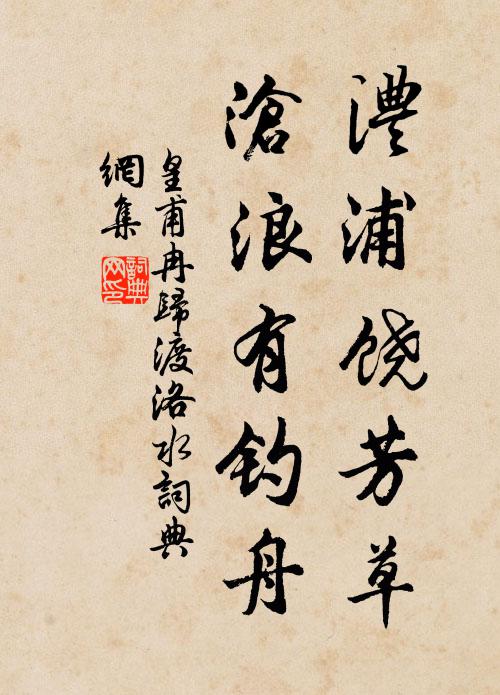 澧浦饶芳草
滄浪有钓舟
皇甫冉歸渡洛水詞典
網集
詞典網印